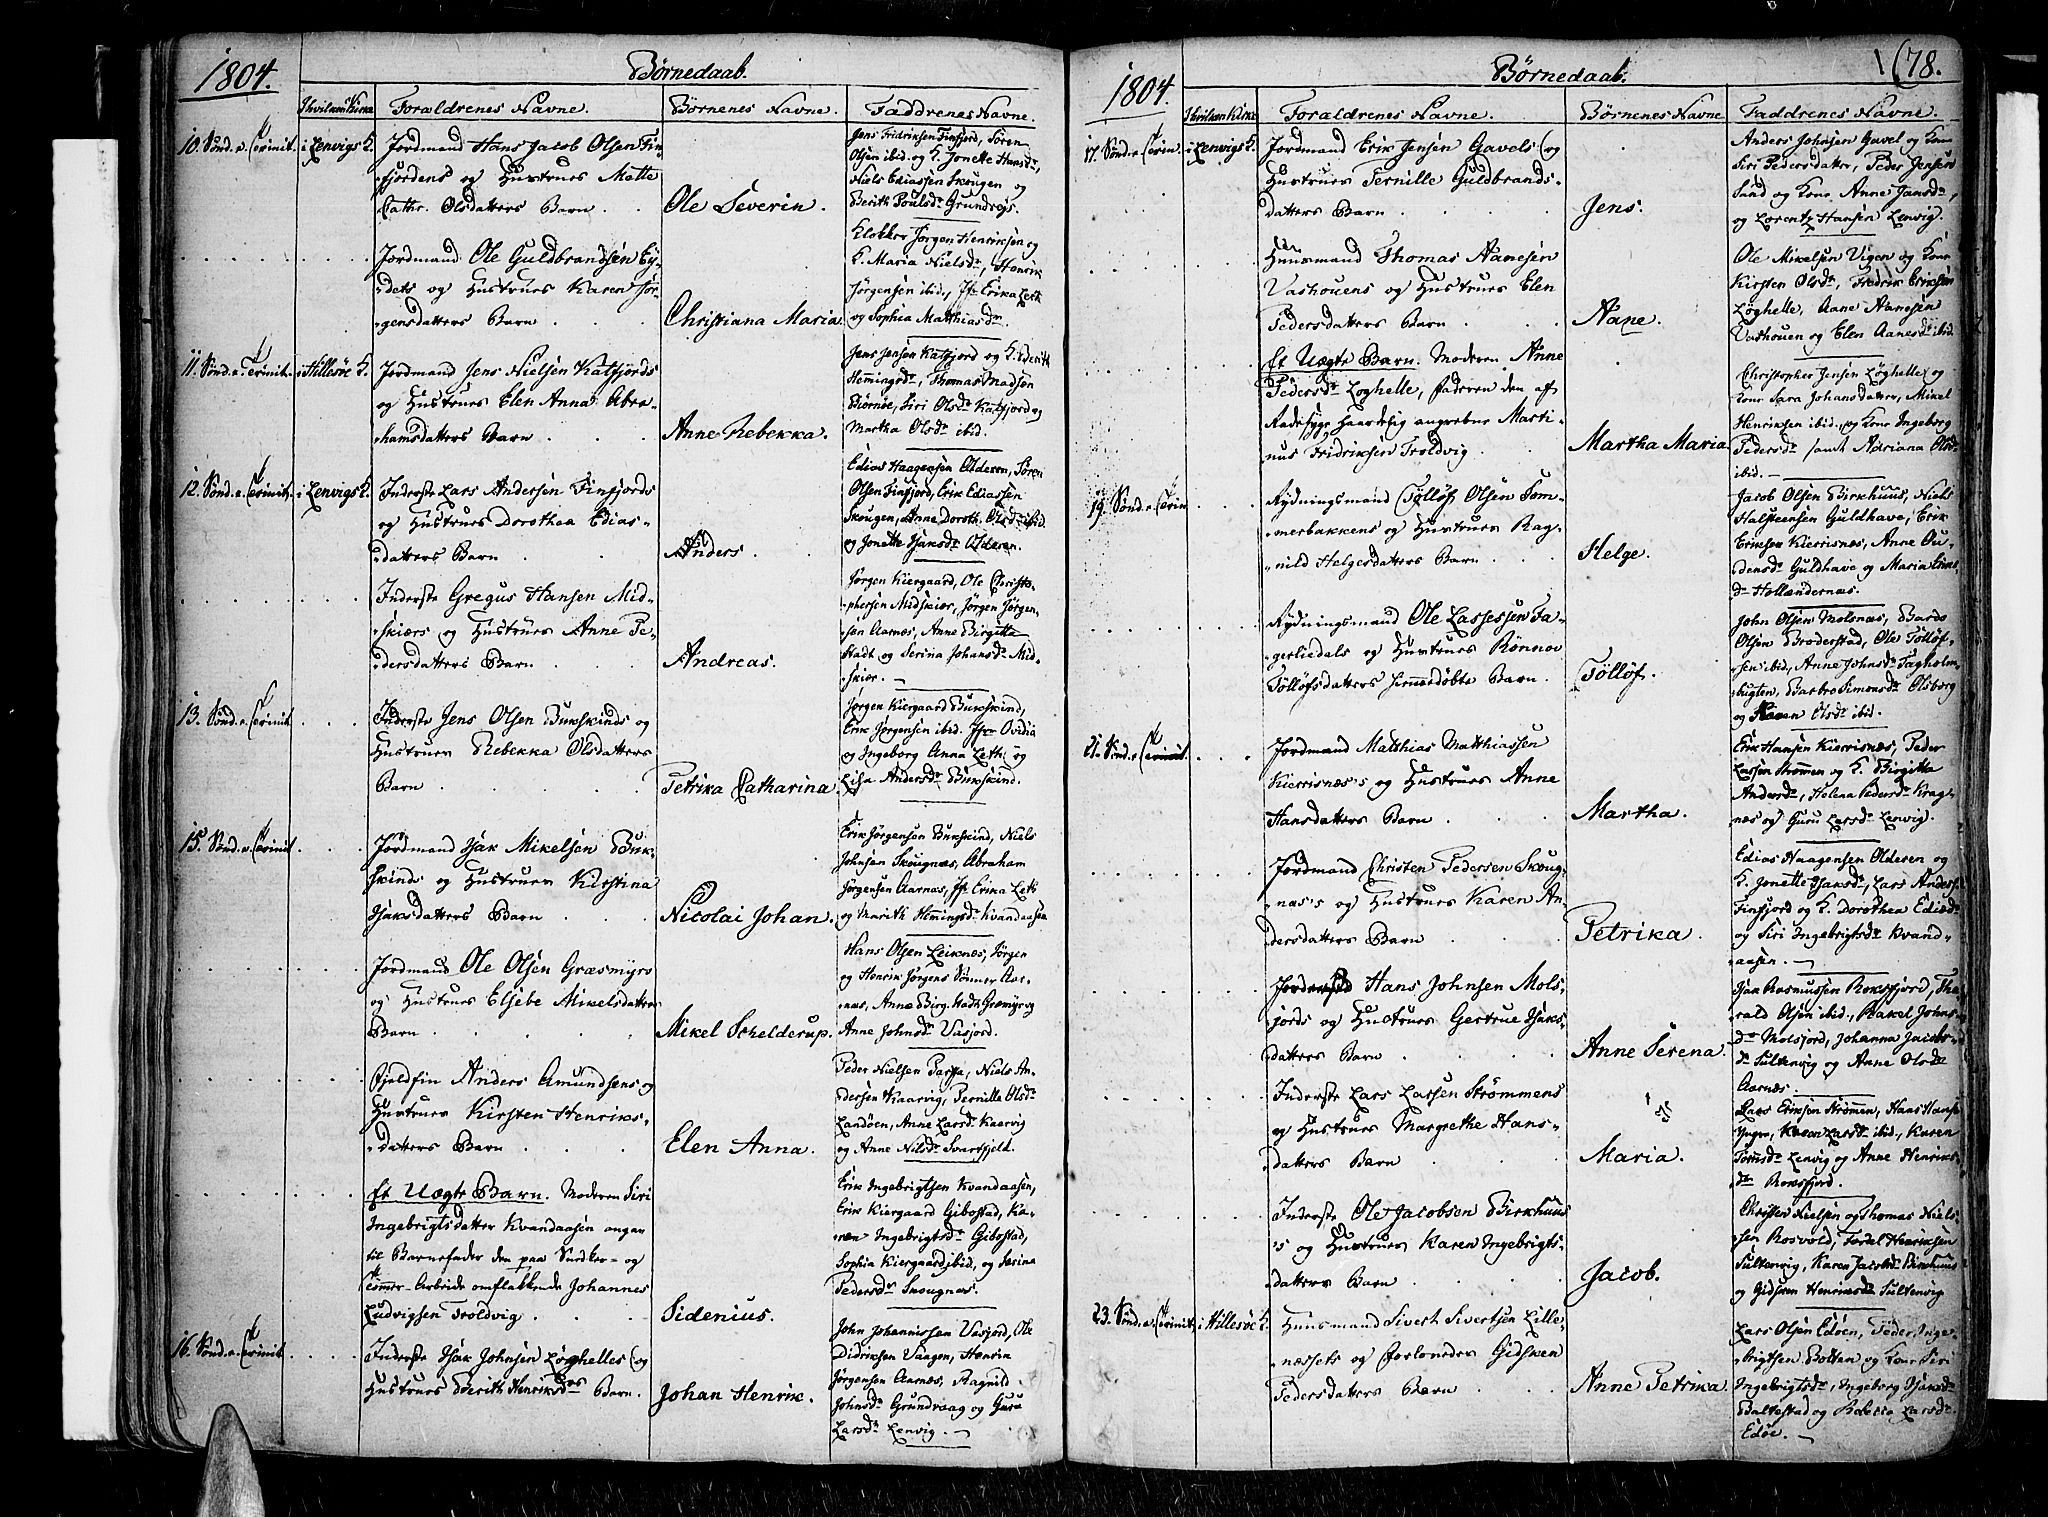 1804.
Børnedaab.
I hvilken Kirke
Forældrenes Navne.
Børnenes Navne.
Faddrenes Navne.
10. Sønd. e. Trinit.
i Lenvigs K.
Jordmand Hans Jacob Olsen Fin-
fjordens og Hustrues Mette
Cathr. Olsdatters Barn
Ole Severin.
Jens Fridriksen Finfjord, Sören
Olsen ibid. og K. Jonette Hansdr,
Niels Ediassen Skougen og
Berith Poulsdr Grundrøjs.
Jordmand Ole Guldbrandsen Ey-
dets og Hustrues Karen Jør-
gensdatters Barn
Christiana Maria
Klokker Jørgen Henriksen og
K. Maria Nielsdr, Henrik
Jørgensen ibid, Jfr Erika Leth
og Sophia Matthiasdr.
11. Sønd. e. Trinit.
i Hillesøe K.
Jordmand Jens Nielsen Katfjords
og Hustrues Elen Anna Abra-
hamsdatters Barn
Anne Rebekka.
Jens Jensen Katfjord og K. Berith
Hemingsdr, Thomas Madsen
Siri Olsdr Katfjord og
Martha Olsdr ibid.
12. Sønd. e. Trinit.
i Lenvigs K.
Inderste Lars Andersen Finfjords
og Hustrues Dorothea Edias-
datters Barn
Anders.
Edias Haagensen Olderen, Sören
Olsen Finfjord, Erik Ediassen
Skougen, Anne Doroth. Olsdr ibid.
og Jonette Isaksdr Olderen.
Inderste Gregus Hansen Mid-
skiærs og Hustrues Anne Pe-
dersdatters Barn
Andreas.
Jørgen Kiergaard, Ole Christo-
phersen Midskiær, Jørgen Jørgen-
sen Aarnæs, Anne Birgitta
Stadt og Serina Johansdr Mid-
skiær.
13. Sønd. e. Trinit.
Inderste Jens Olsen Bukskinds og
Hustrues Rebekka Olsdatters
Barn
Petrika Catharina.
Jørgen Kiergaard Bukskind,
Erik Jørgensen ibid. Jfr Ovidia
og Ingeborg Anna Leth og
Lisa Andersdr Bukskind.
15. Sønd. e. Trinit.
Jordmand Isak Mikelsen Buk-
skinds og Hustrues Kirstina
Isaksdatters Barn
Nicolai Johan.
Erik Jørgensen Bukskind, Niels
Johnsen Skougnæs, Abraham
Jørgensen Aarnæs, Jfr Erika Leth
og Marith Hemingsdr Kvandaasen
Jordmand Ole Olsen Græsmyrs
og Hustrues Elsebe Mikelsdatters
Barn
Mikel Schelderup.
Hans Olsen Leiknæs, Jørgen
og Henrik Jørgens Sønner Aar-
næs, Anne Birg. Stadt Græsmyr og
Anne Johnsdr Vasjord.
Fjeldfin Anders Amundsens og
Hustrues Kirsten Henriks-
datters Barn
Elen Anna.
Peder Nielsen Parssa, Niels An-
dersen Kaarvig, Pernille Olsdr
Landöen, Anne Larsdr Kaarvig
og Anne Nilsdr Svartfjeld.
Et Uægte Barn. Moderen Siri
Ingebrigtsdatter Kvandaasen angav
til Barnefader den paa Snedker- og
Tømmer-Arbeide omflakkende Johannes
Ludvigsen Troldvig
Sidenius.
Erik Ingebrigtsen Kvandaasen,
Erik Kiergaard Gibostad, Ka-
ren Ingebrigtsdr Gibostad,
Sophia Kiergaard ibid, og Serina
Pedersdr Skougnæs.
16. Sønd. e. Trinit.
Inderste Isak Johnsen Løghelles og
Hustrues Berith Henriksdrs Barn.
Johan Henrik.
John Johannissen Vasjord, Ole
Didriksen Vaagen, Henrik
Jørgensen Aarnæs, Ragnild
Johnsdr Grundvaag og Guru
Larsdr Lenvig.
1804.
Børnedaab.
178.
I hvilken Kirke
Forældrenes Navne.
Børnenes Navne
Faddrenes Navne.
17. Sønd. e. Trin.
i Lenvigs K.
Jordmand Erik Jensen Gavels og
Hustrues Pernille Guldbrands-
datters Barn
Jens.
Anders Johnsen Gavel og Kone
Siri Pedersdatter, Peder Jensen
Sand og Kone Anne Jansdr,
og Lorentz Hansen Lenvig.
Huusmand Thomas Aanesen
Vashouens og Hustrues Elen
Pedersdatters Barn
Aane.
Ole Mikelsen Vigen og Kone
Kirsten Olsdr, Fredrik Eriksen
Løghelle, Aane Aanesen
Vashouen og Elen Aanesdr ibid.
Et Uægte Barn. Moderen Anne
Pedersdr Løghelle, faderen den af
Radesyge haardelig angrebne Marti-
nus Fridriksen Troldvig
Martha Maria
Christopher Jensen Løghelle og
Kone Sara Johansdatter, Mikel
Henriksen ibid. og Kone Ingeborg
Pedersdr samt Adriana Olsdr
ibid.
19. Sønd. e. Trin.
Rydningsmand Tølløf Olsen Tom-
merbakkens og Hustrues Rag-
nild Helgesdatters Barn
Helge.
Jacob Olsen Birkhuus, Niels
Halsteensen Guldhave, Erik
Eriksen Kierrisnæs, Anne Ou-
densdr Guldhave og Maria Eriks-
dr Hollændernæs.
Rydningsmand Ole Lassessen Fa-
gerliedals og Hustrues Rönnov
Tølløfsdatters hjemmedøbte Barn.
Tølløf.
John Olsen Molsnæs, Baro
Olsen Broderstad, Ole Tølløf-
sen ibid, Anne Johnsdr Tagholm-
bugten, Barbro Simonsdr Olsborg
og Karen Olsdr ibid.
21. Sønd. e. Trinit.
Jordmand Matthias Matthiassen
Kierrisnæs's og Hustrues Anne
Hansdatters Barn
Martha.
Erik Hansen Kierrisnæs, Peder
Lassen Strømmen og K. Birgitta
Andersdr, Helena Pedersdr Krag-
næs og Guru Larsdr Lenvig.
Jordmand Christen Pedersen Skoug-
næs's og Hustrues Karen An-
dersdatters Barn
Petrika.
Edias Haagensen Olderen og
K. Jonette Isaksdr, Lars Anders.
Finfjord og K. Dorothea Ediædr
og Siri Ingebrigtsdr Kvand-
aasen.
Hans Johnsen Mols-
jords og Hustrues Gertrue Isaks-
datters Barn
Anne Serena.
Isak Rasmussen Roksfjord, Tha-
rald Olsen ibid., Rakel Johns-
dr Molsjord, Johanna Jacobs-
dr Sultenvig og Anne Olsdr
Aarnæs.
Inderste Lars Larsen Strømmens
og Hustrues Margrethe Hans-
datters Barn
Maria.
Lars Eriksen Strømmen, Hans Hanse
Karen Larsdr ibid., Karen
Lenvig og Anne Henriks-
dr Roksfjord.
Inderste Ole Jacobsen Birkhuus
's og Hustrues Karen Ingebrigts-
datters Barn
Jacob.
Christen Nielsen og Thomas Niels-
sen Rosvold, Fordal Henriksen
Sultenvig, Karen Jacobsdr Birkhuus
og Gidsken Henriksdr Sultenvig
23. Sønd. e. Trinit.
i Hillesøe K.
Huusmand Sivert Sivertsen Lille-
næssets og forlovedes Gidsken
Pedersdatters Barn
Anne Petrika.
Lars Olsen Edøen, Peder Inge-
brigtsen Bolten og Kone Siri
Ingebrigtsdr, Ingeborg Isaksdr
Baltestad og Larsdr
Edøe.